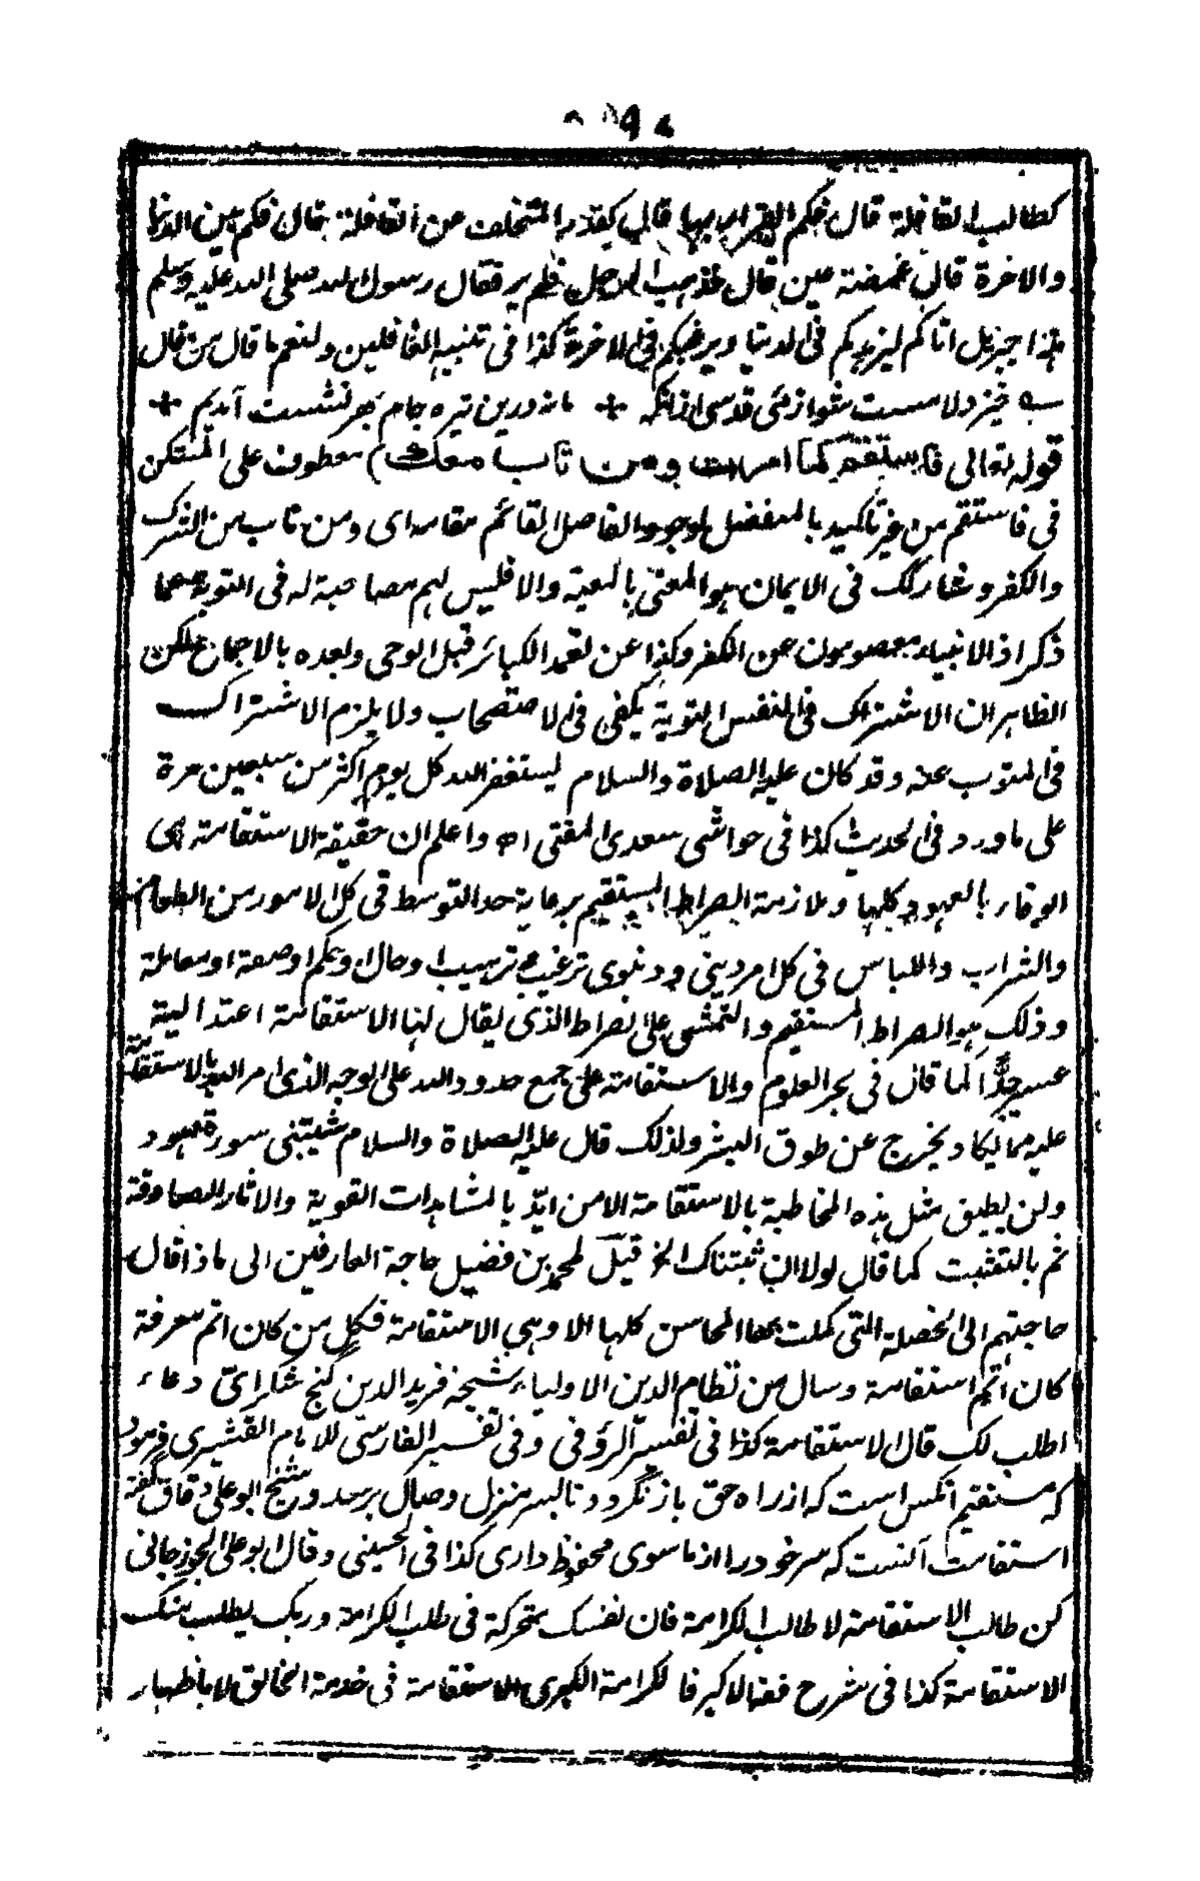 كطالب القافلة قال فكم القرار بها قال كقدر المتخلف عن القافلة قال فكم بين الدنيا
والاخرة قال غمضة عين قال فذهب الرجل فلم ير فقال رسول الله صلى الله عليه وسلم
هذا جبريل اتاكم ليزهدكم فى الدنيا ويرغبكم فى الاخرة كذا فى تنبيه الغافلين ولنعم ما قال من قال
خيز دلا مست شو از مى قدسى ازانكه * ما نه درين تيره جام بهر نشست آمديم *
قوله تعالى فاستقم كما امرت ومن تاب معك) معطوف على المستكن
فى فاستقم من غير تاكيد بالمنفصل لوجود الفاصل القائم مقامه اى ومن تاب من الشرك
والكفر وشاركك فى الايمان هو المعنىّ بالمعية والا فليس لهم مصاحبة له فى التوبة عما
ذكر اذ الانبياء معصومون عن الكفر وكذا عن تعمد الكبائر قبل الوحى وبعده بالاجماع لكن
الظاهر ان الاشتراك فى نفس التوبة يكفى فى الاصتحاب ولا يلزم الاشتراك
فى المتوب عنه وقد كان عليه الصلاة والسلام يستغفر الله كل يوم اكثر من سبعين مرة
على ما ورد فى الحديث كذا فى حواشى سعدى المفتى اه واعلم ان حقيقة الاستقامة هى
الوفاء بالعهود كلها وملازمة الصراط المستقيم برعاية حد التوسط فى كل الامور من الطعام
والشراب واللباس فى كل امر دينى ودنيوى ترغيب او ترهيب او حال او حكم او صفة او معاملة
وذلك هو الصراط المستقيم والتمشى على الصراط الذى يقال لها الاستقامة اعتدالية
عسير جدًّا كما قال فى بحر العلوم والاستقامة على جمع حدود الله على الوجه الذى امر الله بالاستقامة
عليه مما يكاد يخرج عن طوق البشر ولذلك قال عليه الصلاة والسلام شيبتنى سورة هود
ولن يطيق مثل هذه المخاطبة بالاستقامة الا من ايّد بالمشاهدات القوية والاثار الصادقة
ثم بالتثبت كما قال لولا ان ثبتناك الخ قيل لمحمد بن فضيل حاجة العارفين الى ماذا قال
حاجتهم الى الخصلة التى كملت بها المحاسن كلها الا وهى الاستقامة فكل من كان اتم معرفة
كان اتم استقامة وسال من نظام الدين الاولياء شيخه فريد الدين گنج شكر اىّ دعاء
اطلب لك قال الاستقامة كذا فى تفسير الرؤفى وفى تفسير الفارسى للامام القشيرى فرمود
كه مستقيم آنكس است كه از راه حق باز نگردد تا بسر منزل وصال برسد وشيخ ابو على دقاق گفته
استقامت آنست كه سر خود را از ما سوى محفوظ دارى كذا فى الحسينى وقال ابو على الجوزجانى
كن طالب الاستقامة لا طالب الكرامة فان نفسك متحركة فى طلب الكرامة وربك يطلب منك
الاستقامة كذا فى شرح فقه الاكبر فالكرامة الكبرى الاستقامة فى خدمة الخالق لا باظهار